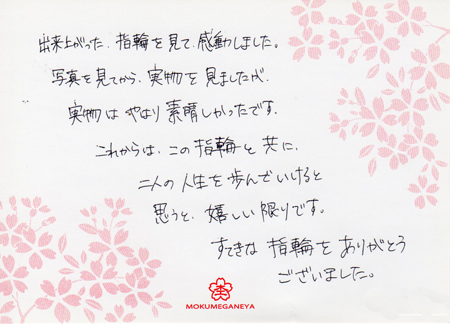 出来上がった、指輪を見て、感動しました。
写真を見てから、実物を見ましたが、
実物は やはり 素晴しかったです。
これからは、この指輪と共に、
二人の人生を歩んでいけると
思うと、嬉しい限りです。
すてきな 指輪を ありがとう
ございました。
MOKUMEGANEYA